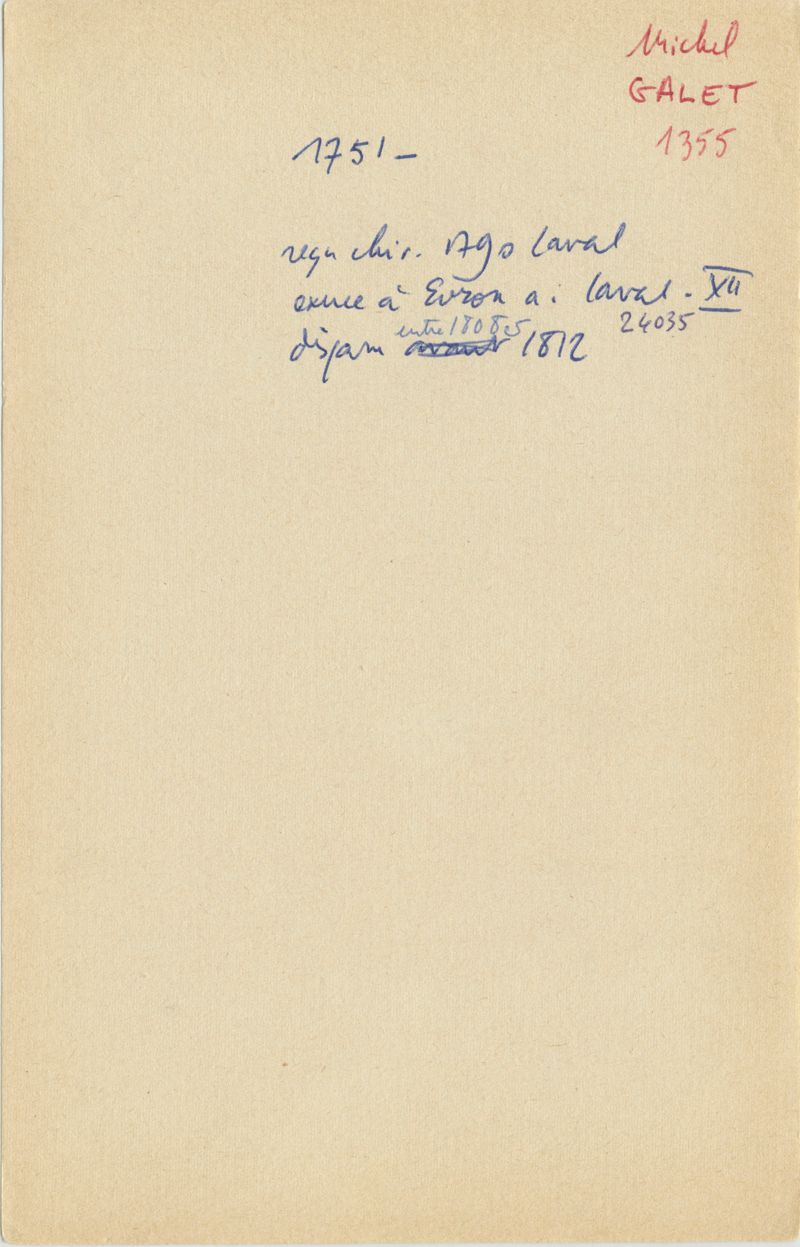 Michel
GALET
1355
1751 -
reçu chir. 1790 Laval
exerce à Evron a. Laval. XII
24035
entre 1808 et
disparu avant 1812